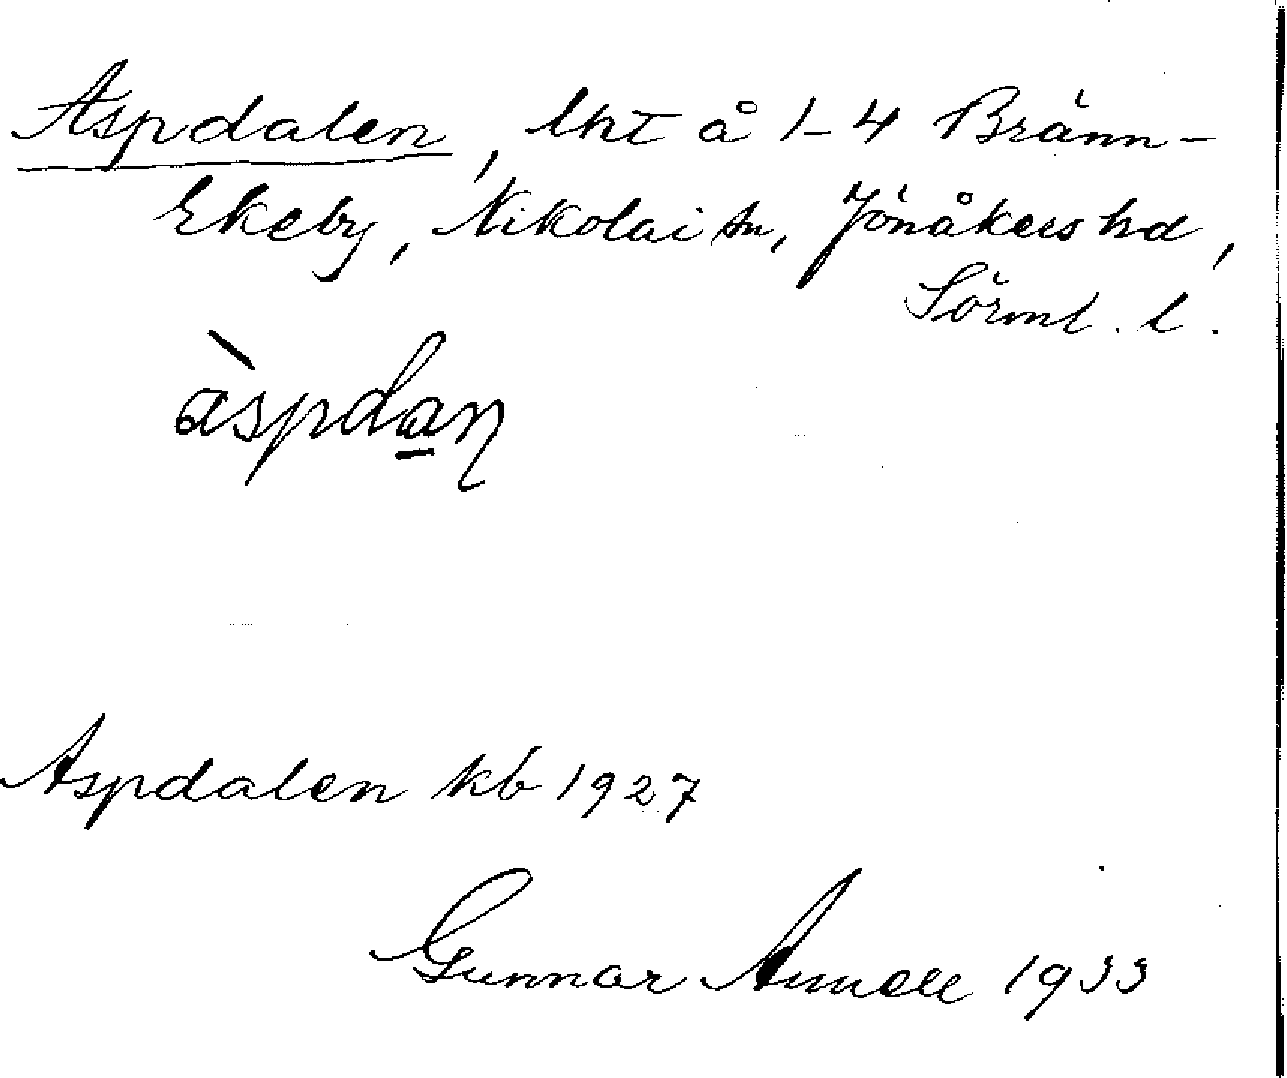 Aspdalen, lht å 1-4 Bränn-
Ekeby, Nikolai sn, Jönåkers hd,
Sörml. l.
àspdan̥
Aspdalen kb 1927
Gunnar 1933